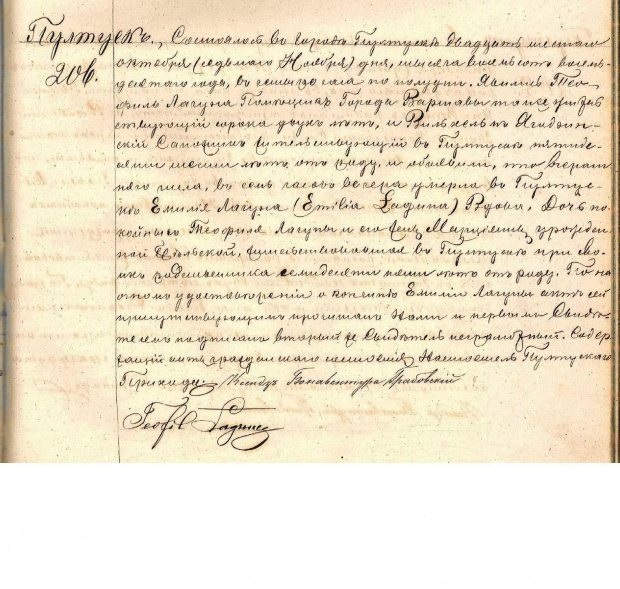 Пултускъ.
206.
Состоялось въ городѣ Пултускѣ двадцать шестаго
октября (седьмаго Ноября) дня, тысяча восемьсотъ восемь-
десятаго года, въ часа по полудни. Явились Тео-
филь Лагуна Города Варшавы тамже житель-
ствующій сорока двухъ лѣтъ, и Вильхельмъ
Сапожникъ жительствующій въ Пултускѣ пятиде-
сяти шести лѣтъ отъ роду, и объявили, что вчераш-
няго числа, въ семь часовъ вечера умерла въ Пулту-
скѣ Емилія Лагуна (Emilia Laguna) Вдова, дочь по-
койныхъ Теофиля Лагуны и его жены Марцiанны урожден-
ной жительствовавшая въ Пултускѣ при
семидесяти пяти лѣтъ отъ роду. По на-
очномъ удостовѣреніи о кончинѣ Емиліи Лагуны актъ сей
присутствующимъ прочитанъ Нами и первымъ Свидѣ-
телемъ подписанъ вторый же Свидѣтель неграмотный. Содер-
жащій акты гражданскаго состоянія Настоятель Пултускаго
Прихода: Ксендзъ Бонавентура Грабовскій
Teofil Laguna